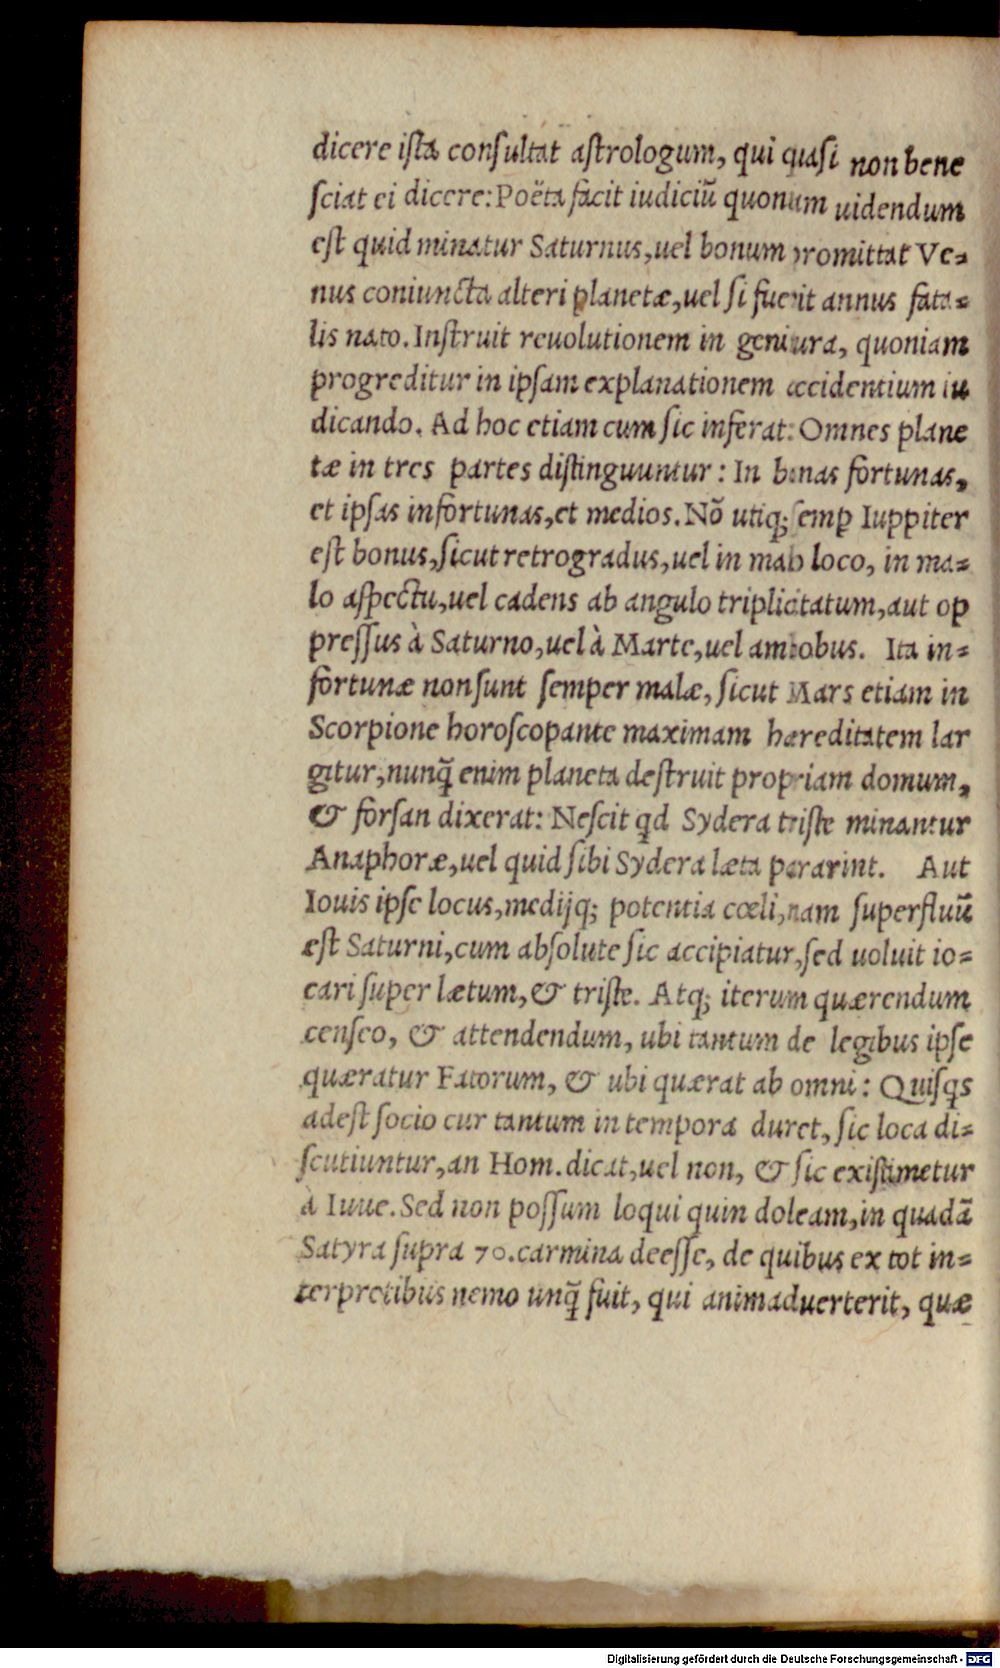 dicere ista consultat astrologum, qui quasi non bene
sciat ei dicere: Poëta facit iudiciū quonum uidendum
est quid minatur Saturnus, uel bonum promittat Ve-
nus coniuncta alteri planetæ, uel si fuerit annus fata-
lis nato. Instruit reuolutionem in genitura, quoniam
progreditur in ipsam explanationem accidentium iu
dicando. Ad hoc etiam cum sic inferat: Omnes plane
tæ in tres partes distinguuntur: In bonas fortunas,
et ipsas infortunas, et medios. Nō utiq; semp Iuppiter
est bonus, sicut retrogradus, uel in malo loco, in ma-
lo aspectu, uel cadens ab angulo triplicitatum, aut op
pressus à Saturno, uel à Marte, uel ambobus. Ita in-
fortunæ non sunt semper malæ, sicut Mars etiam in
Scorpione horoscopante maximam hæreditatem lar
gitur, nunq̃ enim planeta destruit propriam domum,
& forsan dixerat: Nescit qd Sydera triste minantur
Anaphoræ, uel quid sibi Sydera læta pararint. Aut
Iouis ipse locus, medijq; potentia cœli, nam superfluū
æst Saturni, cum absolute sic accipiatur, sed uoluit io-
cari super lætum, & triste. Atq; iterum quærendum
censeo, & attendendum, ubi tantum de legibus ipse
quæratur Fatorum, & ubi quærat ab omni: Quisqs
adest socio cur tantum in tempora duret, sic loca di-
scutiuntur, an Hom. dicat, uel non, & sic existimetur
à Iuue. Sed non possum loqui quin doleam, in quadā
Satyra supra 70. carmina deesse, de quibus ex tot in-
terpretibus nemo unq̃ fuit, qui animaduerterit, quæ
Digitalisierung gefördert durch die Deutsche Forschungsgemeinschaft - DFG